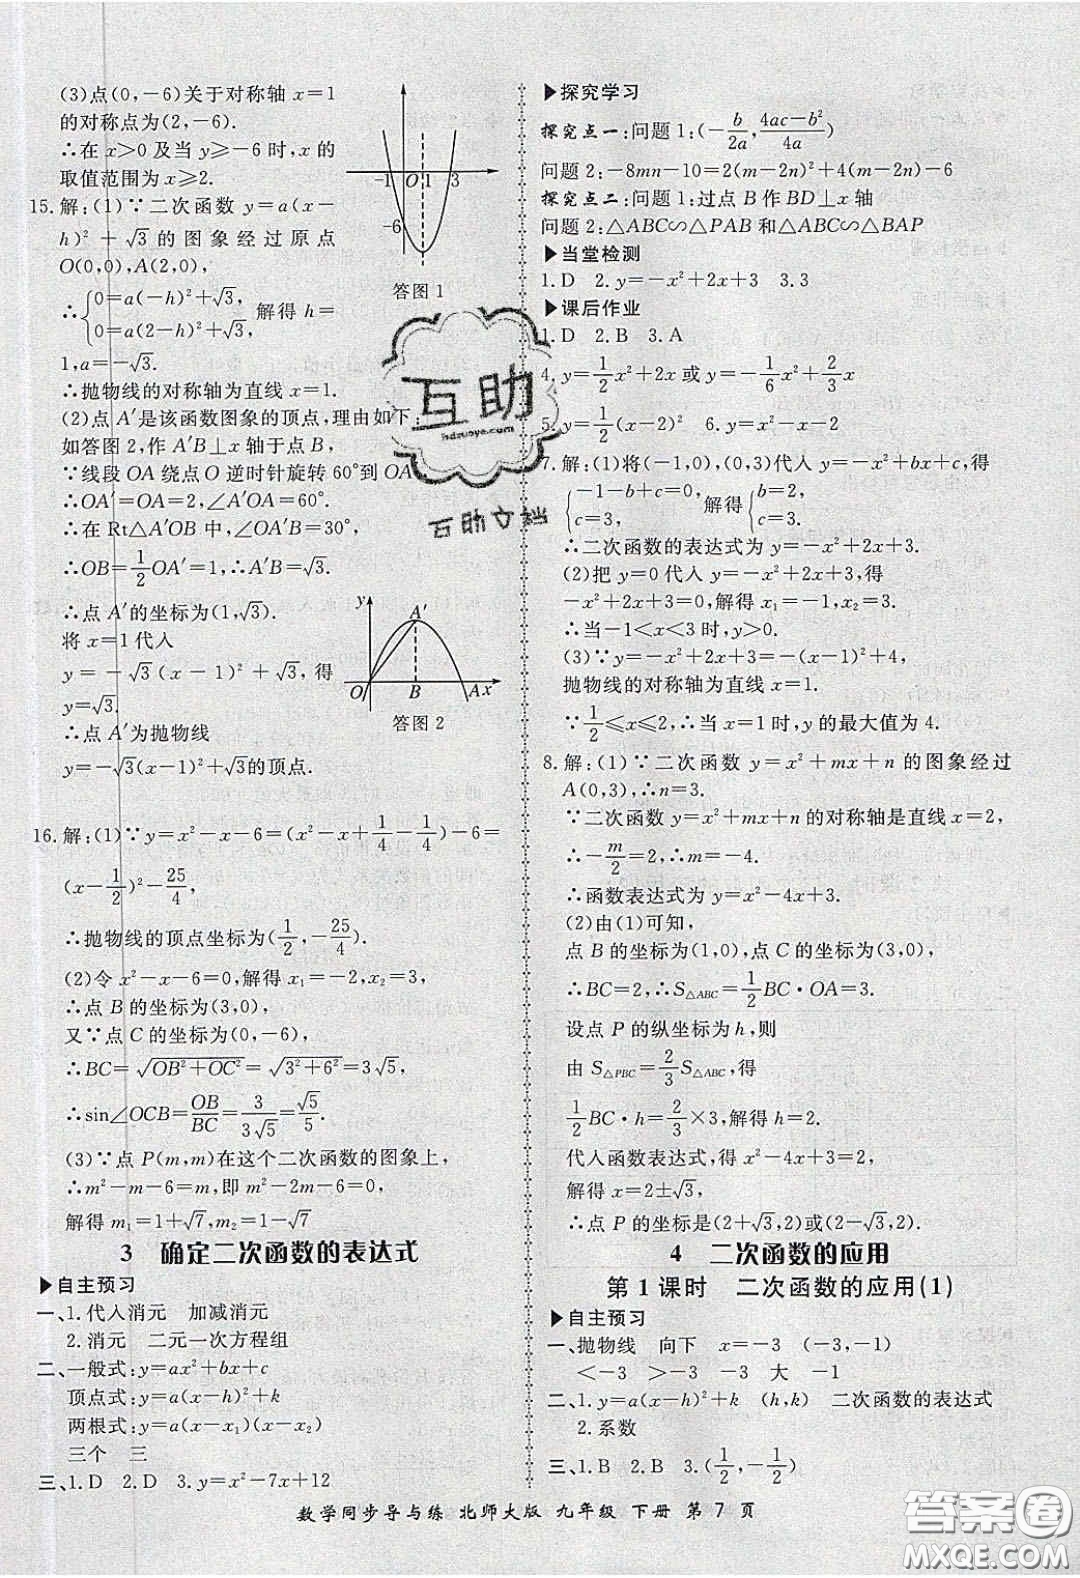 (3)点(0,-6)关于对称轴 x=1
的对称点为(2,-6).
∴在 x>0 及当 y≥-6 时,x 的
取值范围为 x≥2.
-1 O 1 3
-6
答图 1
15.解:(1)∵二次函数 y=a(x-
h)²+√3 的图象经过原点
O(0,0),A(2,0),
∴{0=a(-h)²+√3, 0=a(2-h)²+√3, 解得 h=
1,a=-√3.
∴抛物线的对称轴为直线 x=1.
(2)点 A′是该函数图象的顶点,理由如下:
如答图 2,作 A′B⊥x 轴于点 B,
∵线段 OA 绕点 O 逆时针旋转 60°到 OA′
∴OA′=OA=2,∠A′OA=60°.
∴在 Rt△A′OB 中,∠OA′B=30°,
∴OB=1/2 OA′=1,∴A′B=√3.
∴点 A′的坐标为(1,√3).
将 x=1 代入
y=-√3(x-1)²+√3,得
y=√3.
∴点 A′为抛物线
y=-√3(x-1)²+√3的顶点.
y A′
O B A x
答图 2
16.解:(1)∵y=x²-x-6=(x²-x+1/4-1/4)-6=
(x-1/2)²-25/4,
∴抛物线的顶点坐标为(1/2,-25/4).
(2)令 x²-x-6=0,解得 x₁=-2,x₂=3,
∴点 B 的坐标为(3,0),
又∵点 C 的坐标为(0,-6),
∴BC=√(OB²+OC²)=√(3²+6²)=3√5,
∴sin∠OCB=OB/BC=3/(3√5)=√5/5.
(3)∵点 P(m,m)在这个二次函数的图象上,
∴m²-m-6=m,即 m²-2m-6=0,
解得 m₁=1+√7,m₂=1-√7
3 确定二次函数的表达式
▶自主预习
一、1.代入消元 加减消元
2.消元 二元一次方程组
二、一般式:y=ax²+bx+c
顶点式:y=a(x-h)²+k
两根式:y=a(x-x₁)(x-x₂)
三个 三
三、1.D 2.D 3.y=x²-7x+12
▶探究学习
探究点一:问题 1:(-b/2a,(4ac-b²)/4a)
问题 2:-8mn-10=2(m-2n)²+4(m-2n)-6
探究点二:问题 1:过点 B 作 BD⊥x 轴
问题 2:△ABC∽△PAB 和△ABC∽△BAP
▶当堂检测
1.D 2.y=-x²+2x+3 3.3
▶课后作业
1.D 2.B 3.A
4.y=1/2x²+2x 或 y=-1/6x²+2/3x
5.y=1/2(x-2)² 6.y=x²-x-2
7.解:(1)将(-1,0),(0,3)代入 y=-x²+bx+c,得
{-1-b+c=0, c=3, 解得{b=2, c=3.
∴二次函数的表达式为 y=-x²+2x+3.
(2)把 y=0 代入 y=-x²+2x+3,得
-x²+2x+3=0,解得 x₁=-1,x₂=3.
∴当-1<x<3 时,y>0.
(3)∵y=-x²+2x+3=-(x-1)²+4,
抛物线的对称轴为直线 x=1.
∵1/2≤x≤2,∴当 x=1 时,y 的最大值为 4.
8.解:(1)∵二次函数 y=x²+mx+n 的图象经过
A(0,3),∴n=3.
∵二次函数 y=x²+mx+n 的对称轴是直线 x=2,
∴-m/2=2,∴m=-4.
∴函数表达式为 y=x²-4x+3.
(2)由(1)可知,
点 B 的坐标为(1,0),点 C 的坐标为(3,0),
∴BC=2,∴S△ABC=1/2BC·OA=3.
设点 P 的纵坐标为 h,则
由 S△PBC=2/3S△ABC,得
1/2BC·h=2/3×3,解得 h=2.
代入函数表达式,得 x²-4x+3=2,
解得 x=2±√3,
∴点 P 的坐标是(2+√3,2)或(2-√3,2).
4 二次函数的应用
第 1 课时 二次函数的应用(1)
▶自主预习
一、抛物线 向下 x=-3 (-3,-1)
<-3 >-3 -3 大 -1
二、1.y=a(x-h)²+k (h,k) 二次函数的表达式
2.系数
三、1.B 2.B 3.(1/2,-1/2)
数学同步导与练 北师大版 九年级 下册 第 7 页
互助
答案圈
MXQE.COM